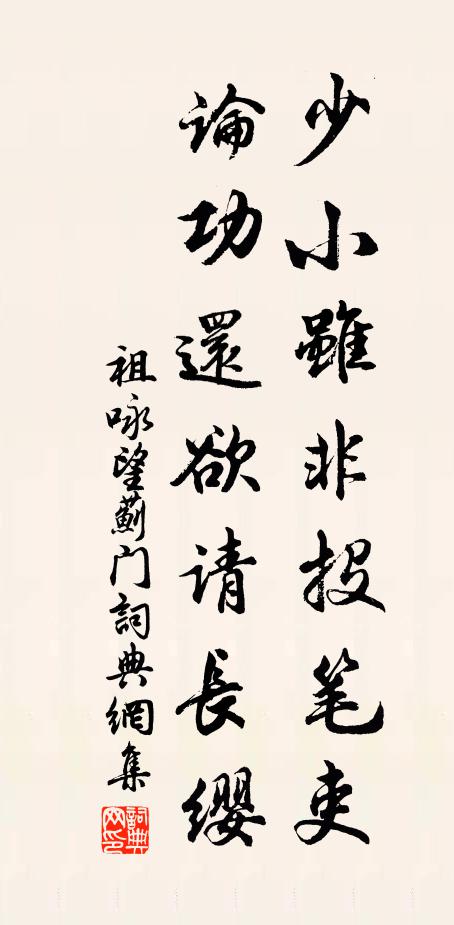 少小雖非投笔吏
論功還欲请長缨
祖咏望薊门詞典網集
詞典网印